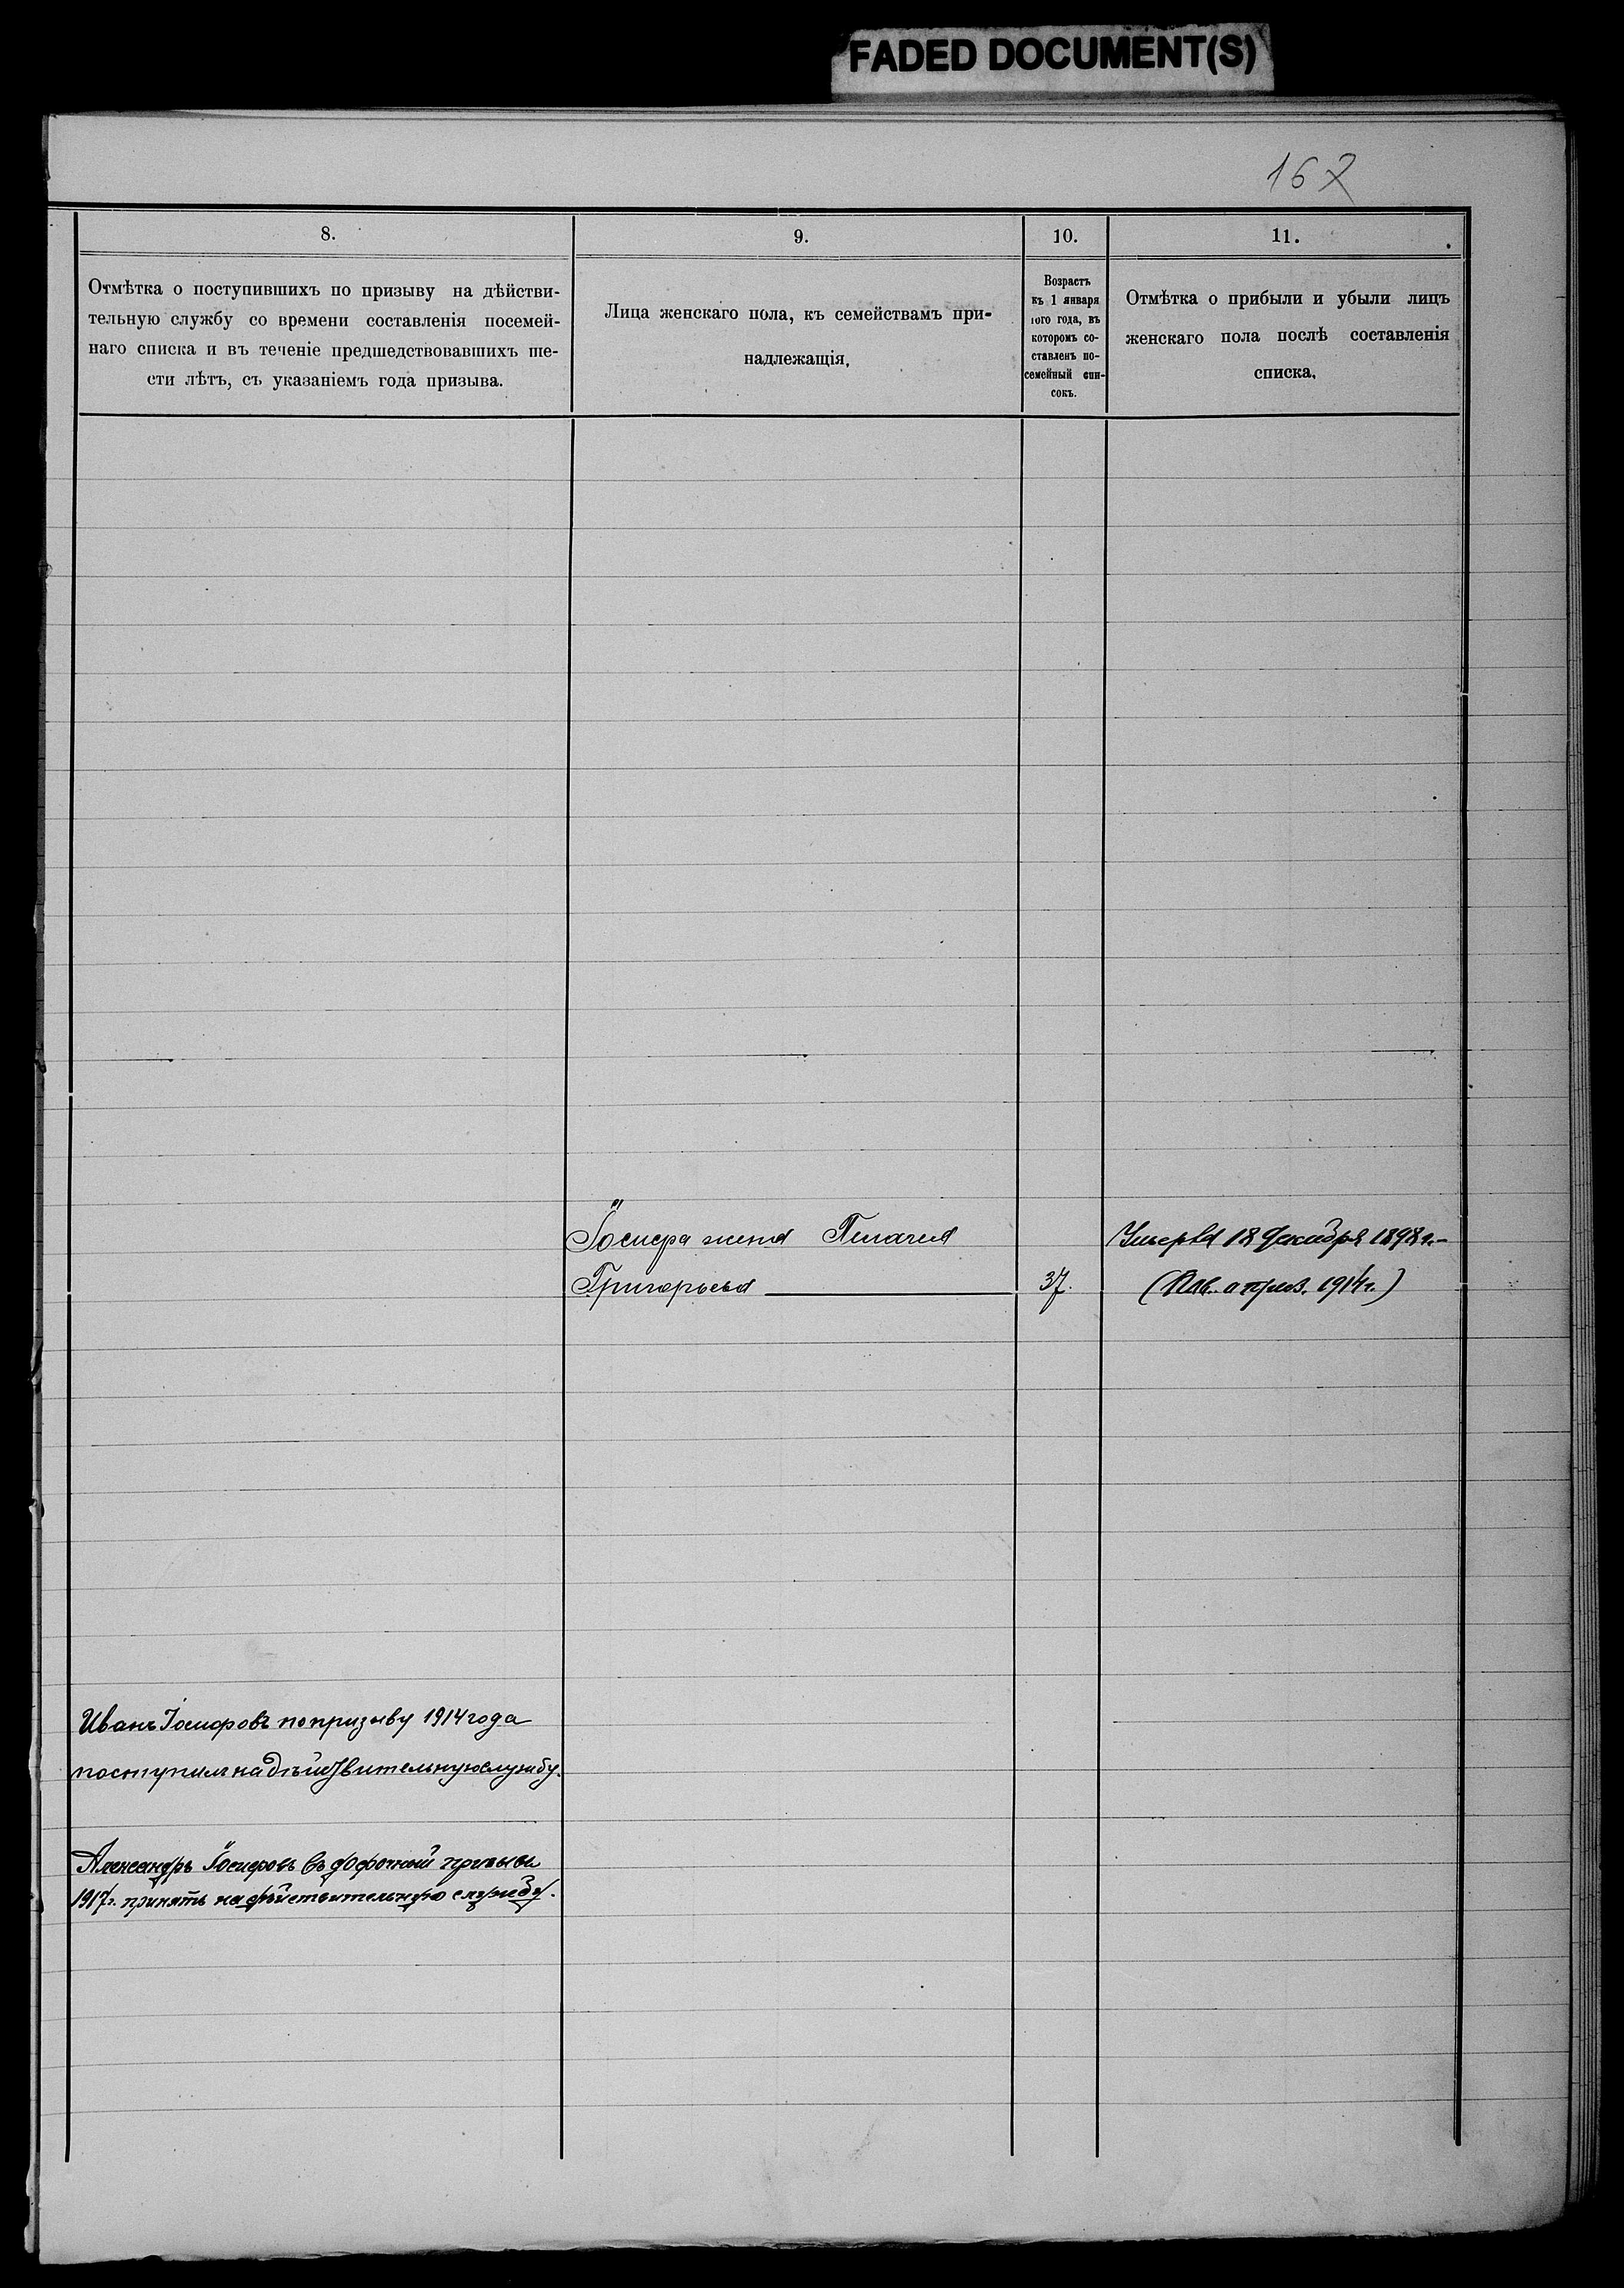 FADED DOCUMENT(S)
167
8.
Отмѣтка о поступившихъ по призыву на дѣйстви-
тельную службу со времени составленія посемей-
наго списка и въ теченіе предшедствовавшихъ ше-
сти лѣтъ, съ указаніемъ года призыва.
9.
Лица женскаго пола, къ семействамъ при-
надлежащія.
10.
Возрастъ
къ 1 января
того года, въ
которомъ со-
ставленъ по-
семейный спи-
сокъ.
11.
Отмѣтка о прибыли и убыли лицъ
женскаго пола послѣ составленія
списка.
Іосифа жена Пелагея
Григорьева
37.
Умерла 18 Декабря 1898 г.-
1914 г.)
Иванъ Іосифовъ по призыву 1914 года
поступилъ на дѣйствительную службу.
Александръ Іосифовъ въ досрочный призывъ
1917 г. принятъ на дѣйствительную службу.